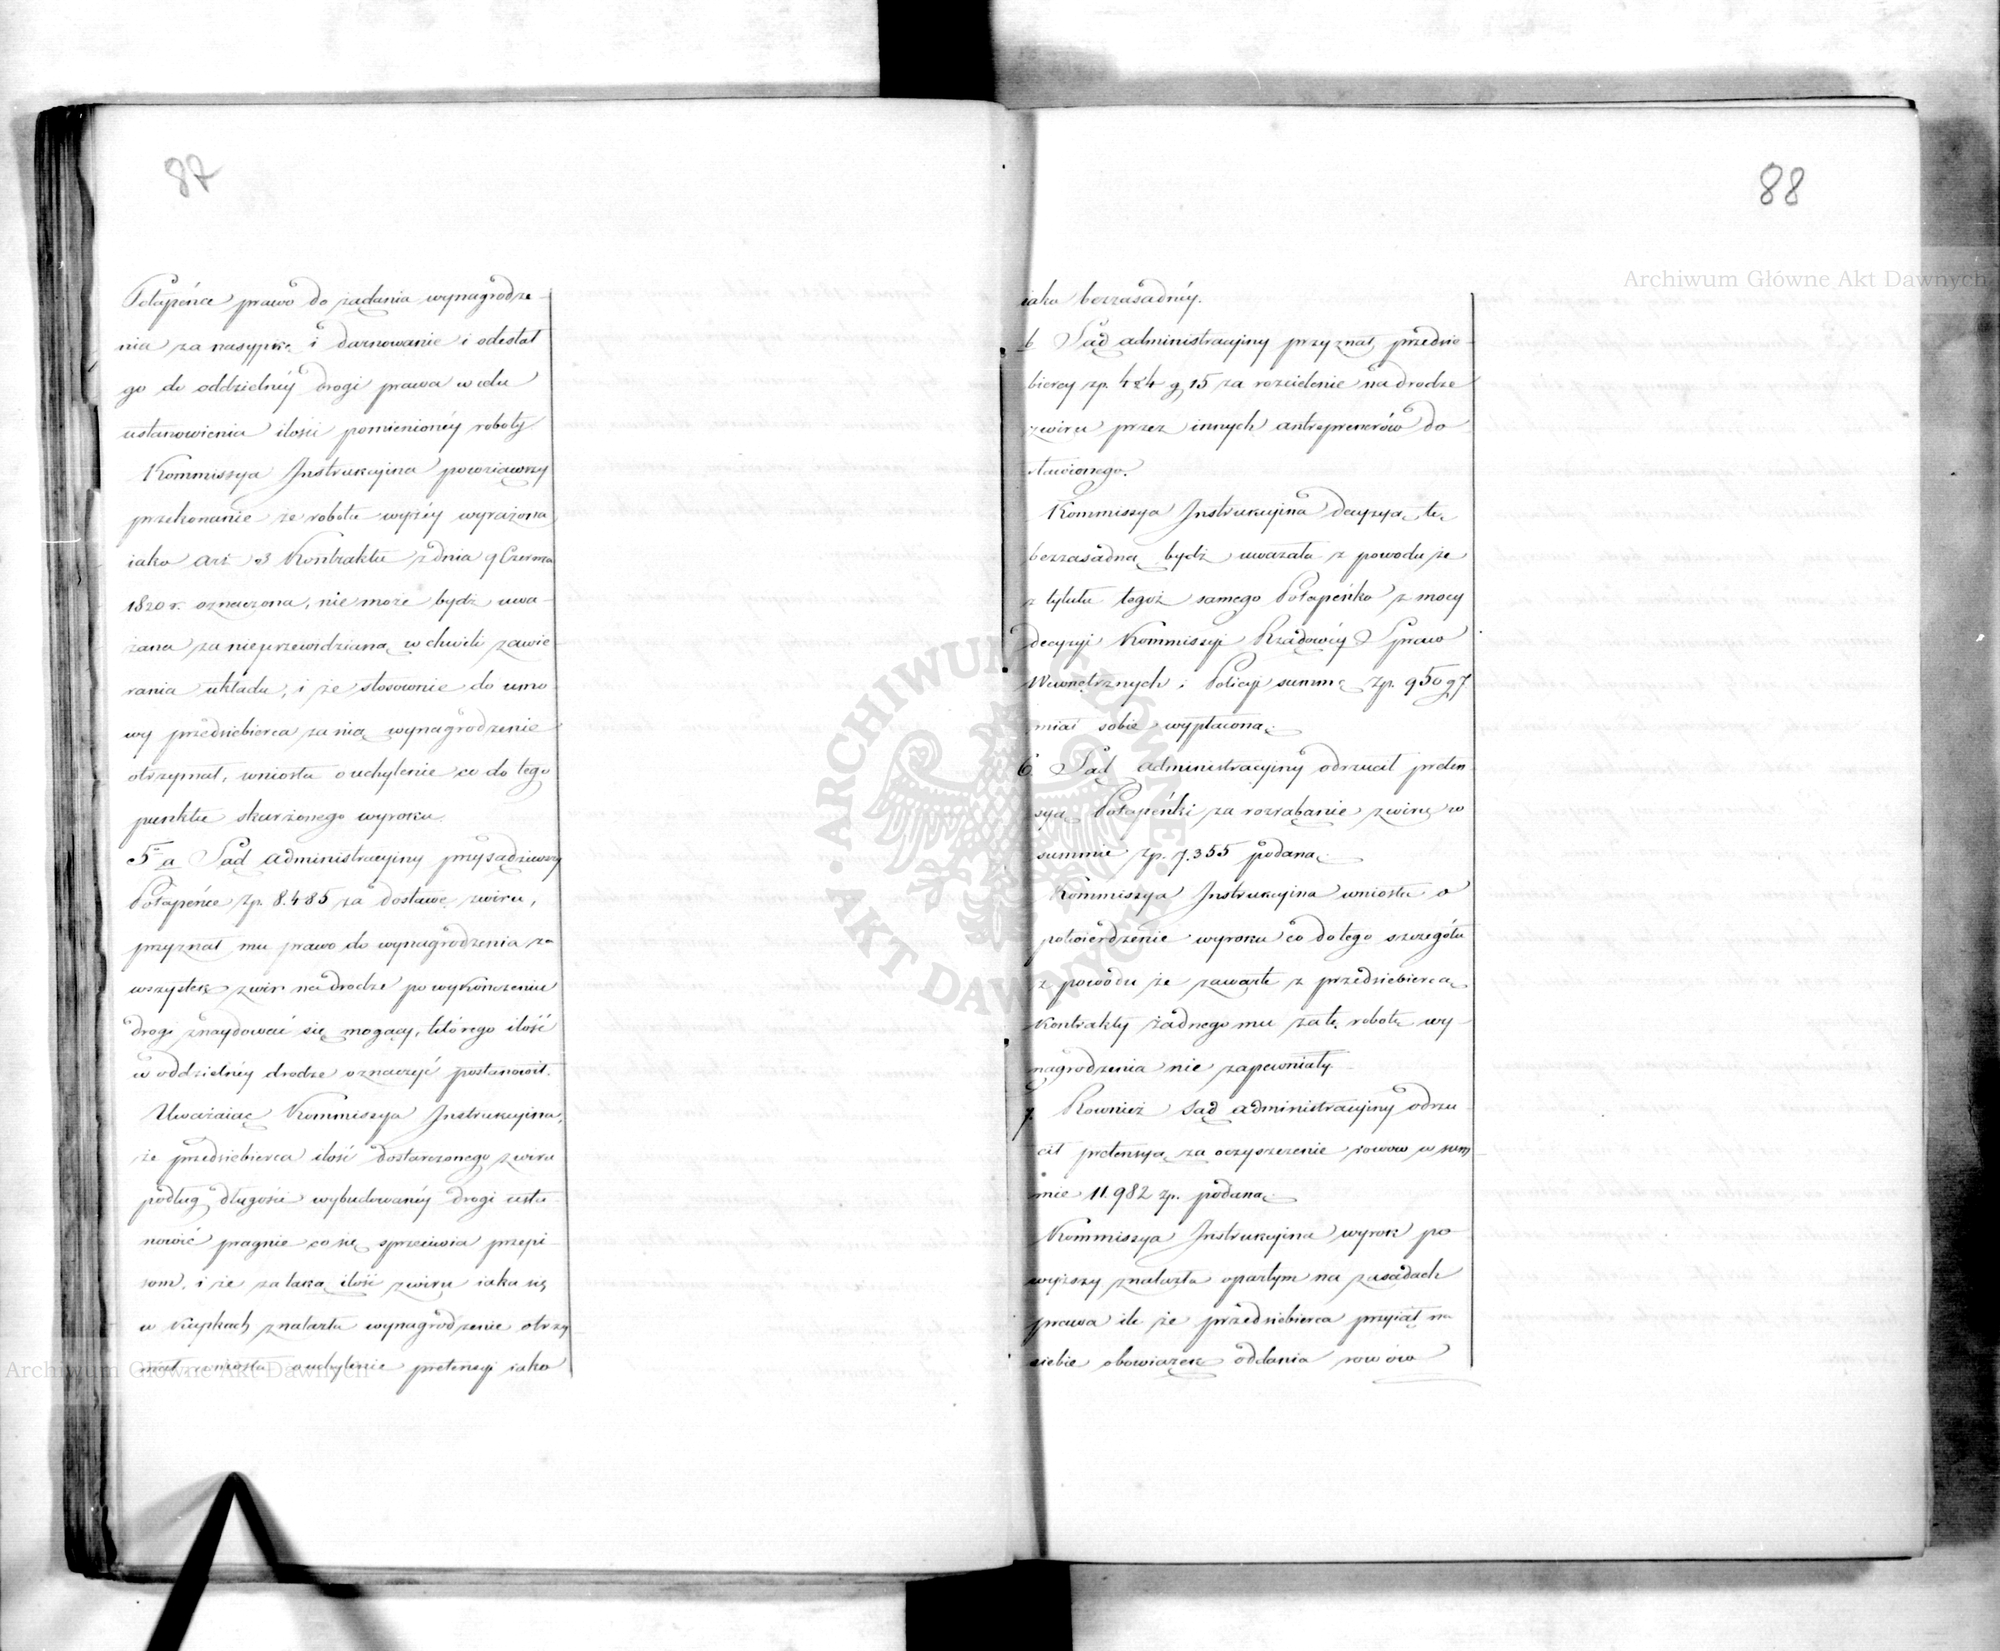 87
Potapeńce prawo do żądania wynagrodze-
nia za nasypkę i darnowanie i odesłał
go do oddzielnéy drogi prawa w celu
ustanowienia ilości pomienionéy roboty
Kommissya Instrukcyina powziąwszy
przekonanie że robota wyżéy wyrażona
iako art 3 Kontraktu z dnia 9 Czerwca
1820 r. oznaczona, nie może bydź uwa-
żana za nieprzewidzianą w chwili zawie-
rania układu, i że stosownie do umo-
wy przedsiebierca za nią wynagrodzenie
otrzymał, wniosła o uchylenie co do tego
punktu skarżonego wyroku.
5. a Sąd administracyiny przysądziwszy
Potapeńce zp. 8.485 za dostawę żwiru,
przyznał mu prawo do wynagrodzenia za
wszystek żwir na drodze po wykończeniu
drogi znaydować się mogący, którego ilość
w oddzielnéy drodze oznaczyć postanowił.
Uważaiąc Kommissya Instrukcyina,
że przedsiebierca ilość dostarczonego żwiru
podług długości wybudowanéy drogi usta-
nowić pragnie co się sprzeciwia przepi-
som, i że za taką ilość żwiru iaka się
w kupkach znalazła wynagrodzenie otrzy
mał, wniosła o uchylenie pretensyi iako
88
iako bezzasadnéy.
b Sąd administracyiny przyznał przedsie-
biercy zp. 424 g 15 za rozcielenie na drodze
żwiru przez innych antreprenerów do
stawionego.
Kommissya Instrukcyina decyzyą tę
bezzasadną bydź uważała z powodu że
z tytułu tegoż samego Potapeńko z mocy
decyzyi Kommissyi Rządowéy Spraw
Wewnętrznych i Policyi summę zp. 950 g 7
miał sobie wypłaconą.
6. Sąd administracyiny odrzucił preten
syą Potapeńki za rozrąbanie żwiru w
summie zp. 7.355 podaną.
Kommissya Instrukcyina wniosła o
potwierdzenie wyroku co do tego szczegółu
z powodu że zawarte z przedsiebiercą
Kontrakty żadnego mu za tę robotę wy-
nagrodzenia nie zapewniały.
7. Rownież Sąd administracyiny odrzu-
cił pretensyą za oczyszczenie rowów w sum
mie 11.982 zp. podaną.
Kommissya Instrukcyina wyrok po
wyższy znalazła opartym na zasadach
prawa ile że przedsiebierca przyiął na
siebie obowiązek oddania rowów
Archiwum Główne Akt Dawnych
Archiwum Główne Akt Dawnych
ARCHIWUM GŁÓWNE AKT DAWNYCH